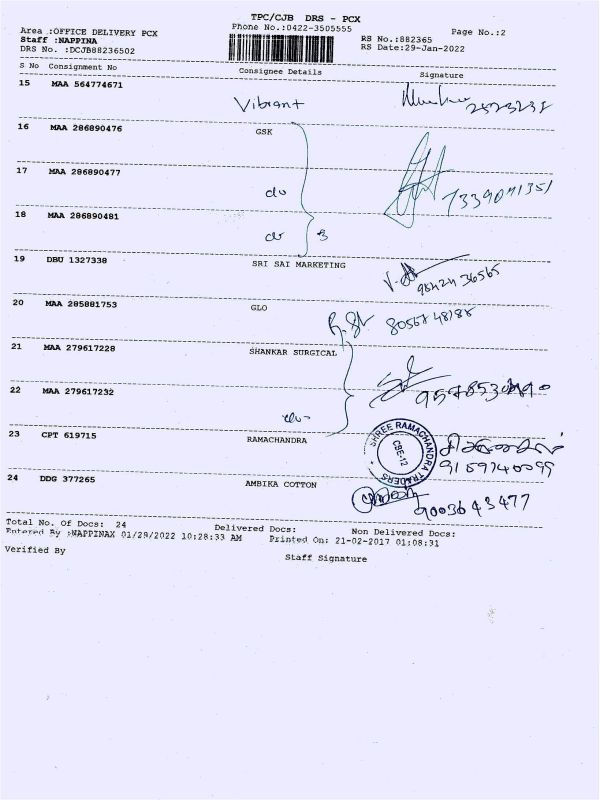 TPC/CJB DRS - PCX
Area :OFFICE DELIVERY PCX Phone No.:0422-3505555 Page No.:2
Staff :NAPPINA RS No.:882365
DRS No. :DCJB88236502 RS Date:29-Jan-2022
S No Consignment No Consignee Details Signature
15 MAA 564774671 Vibrant
16 MAA 286890476 GSK
17 MAA 286890477 do 7339041351
18 MAA 286890481 do 3
19 DBU 1327338 SRI SAI MARKETING 9842436565
20 MAA 285881753 GLO 8056748188
21 MAA 279617228 SHANKAR SURGICAL
22 MAA 279617232 do-
23 CPT 619715 RAMACHANDRA SHREE RAMACHANDRA TRADERS CBE-12 9159740099
24 DDG 377265 AMBIKA COTTON 9003643477
Total No. Of Docs: 24 Delivered Docs: Non Delivered Docs:
Entered By :NAPPINAX 01/29/2022 10:28:33 AM Printed On: 21-02-2017 01:08:31
Verified By Staff Signature